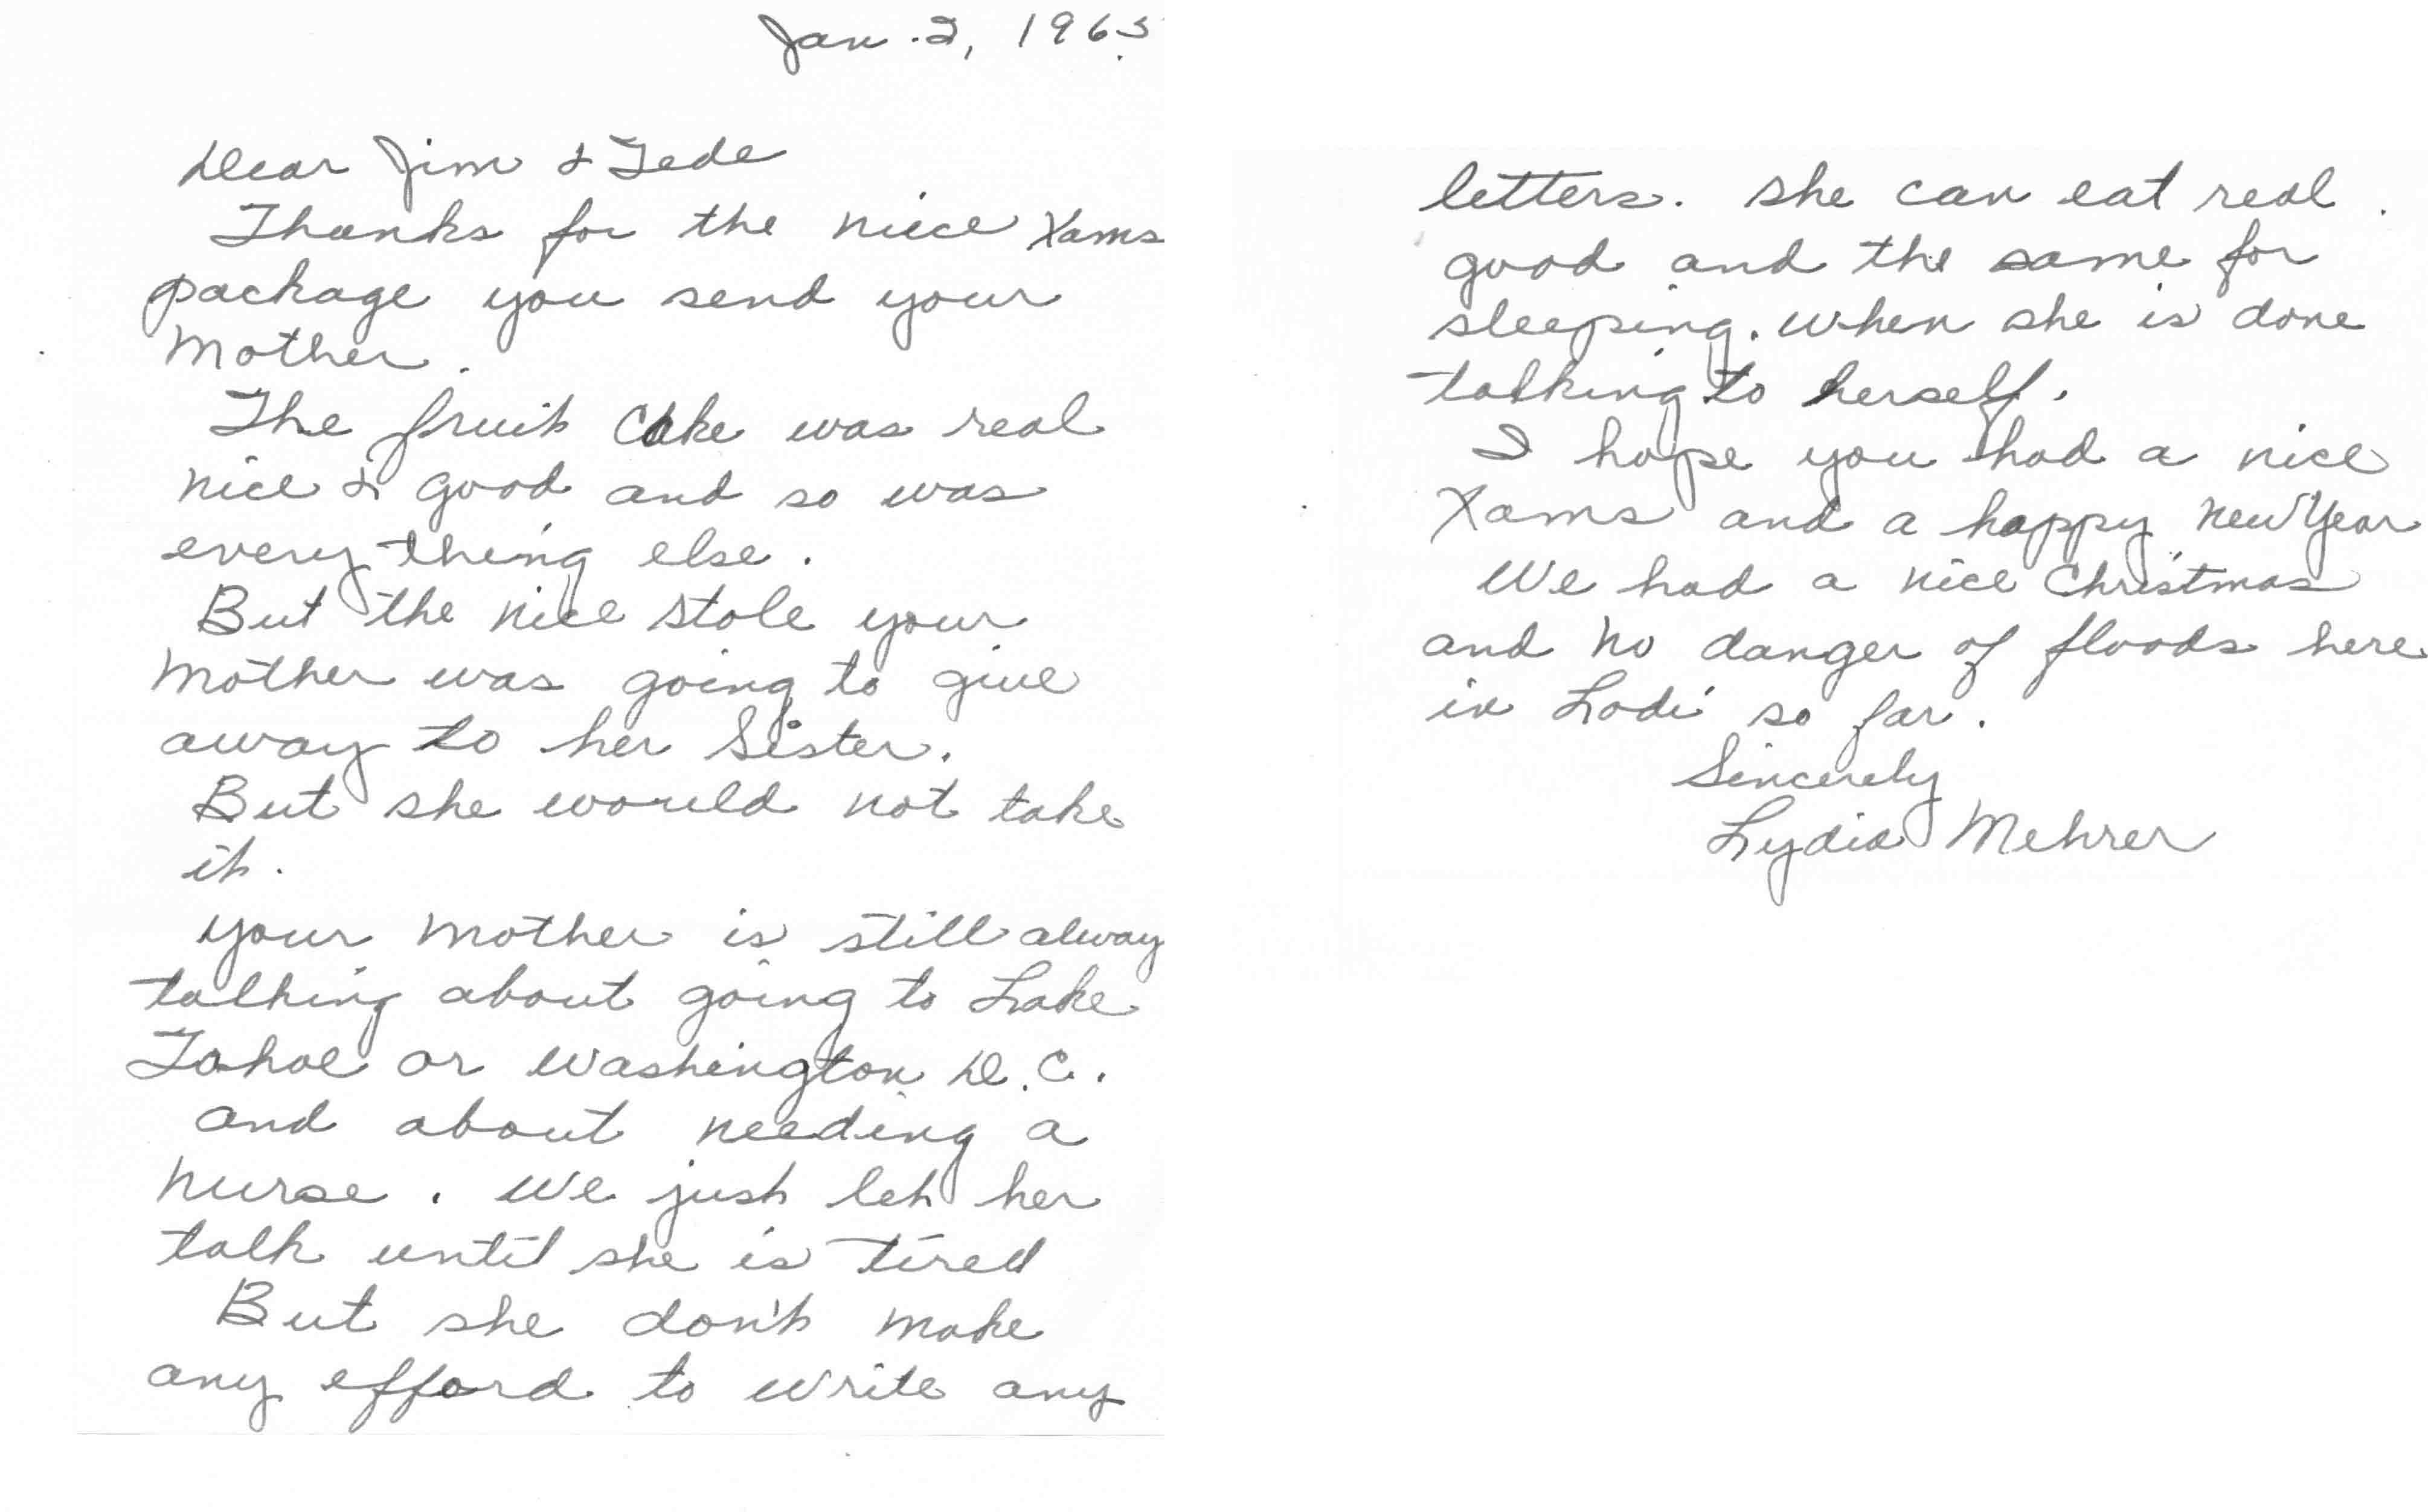 Jan. 2, 1965
Dear Jim & Tede
Thanks for the niece Xams
package you send your
Mother.
The fruit Cake was real
nice & good and so was
every thing else.
But the nice stole your
Mother was going to give
away to her Sister.
But she would not take
it.
your Mother is still alway
talking about going to Lake
Tahoe or Washington D.C.
and about needing a
nurse. We just let her
talk until she is tired
But she don't make
any efford to write any
letters. She can eat real
good and the same for
sleeping. When she is done
talking to herself.
I hope you had a nice
Xams and a happy New Year
We had a nice Christmas
and no danger of floods here
in Lodi so far.
Sincerely
Lydia Mehrer